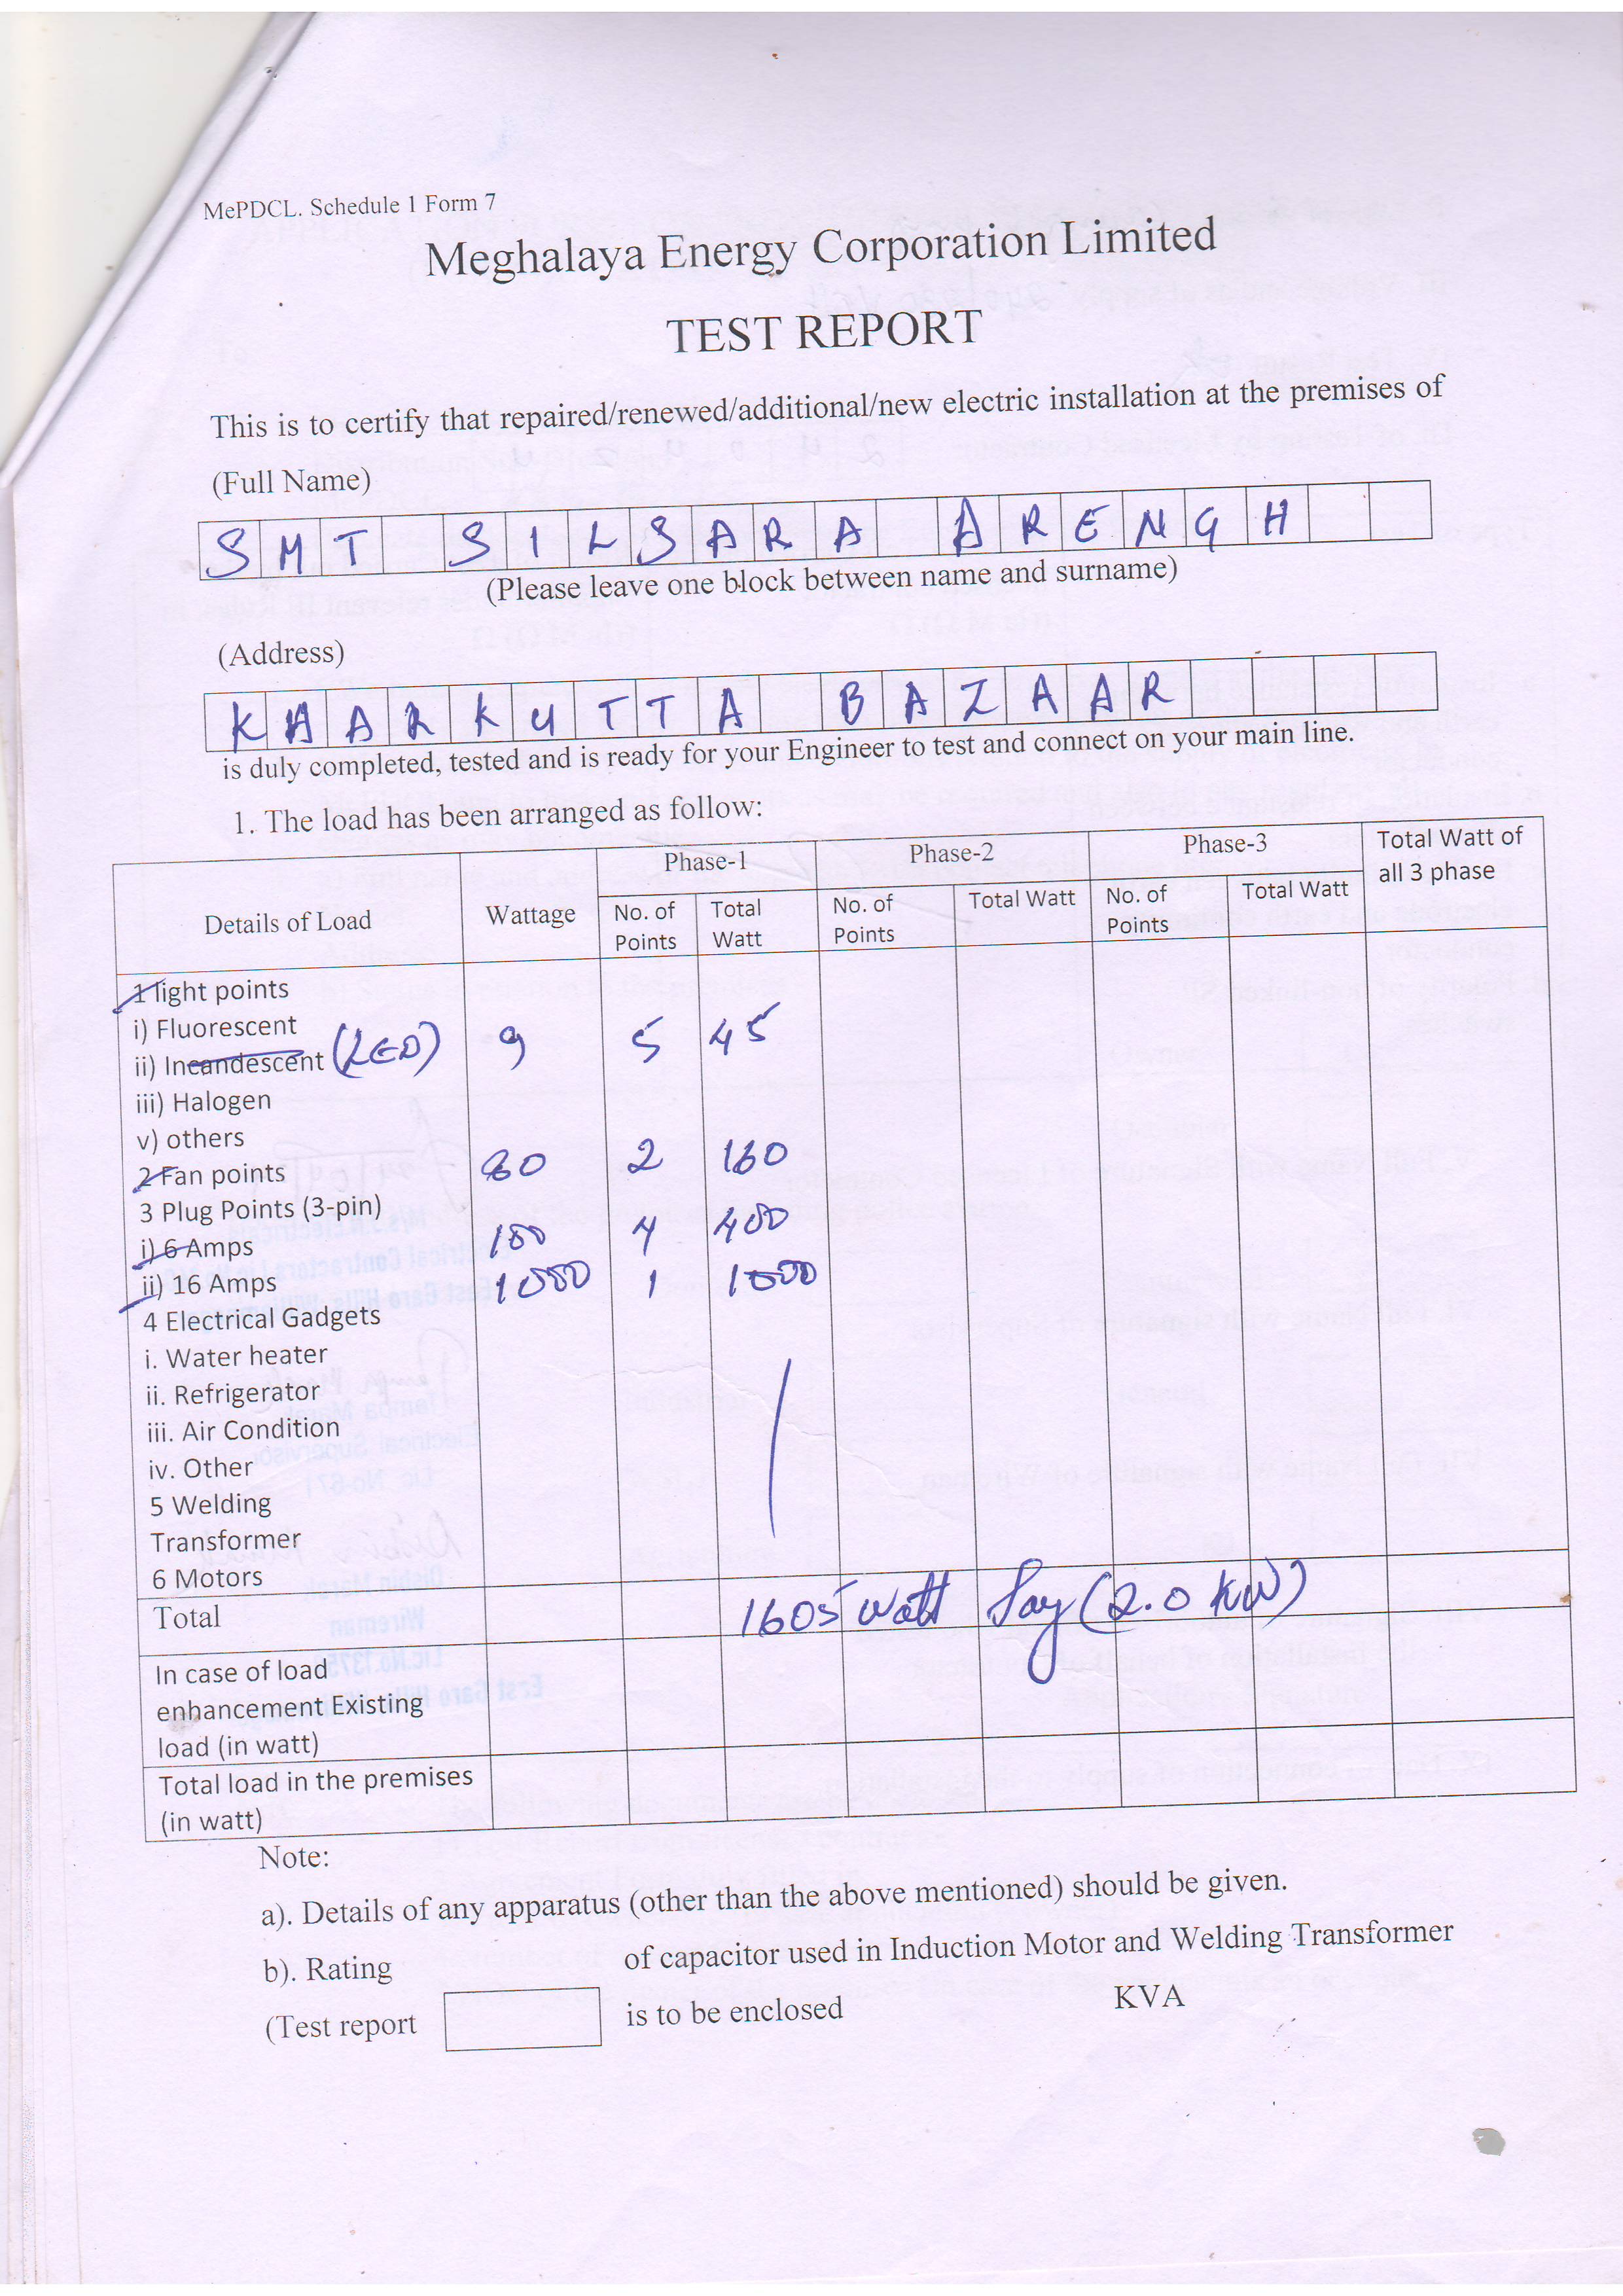 MePDCL. Schedule 1 Form 7
Meghalaya Energy Corporation Limited
TEST REPORT
This is to certify that repaired/renewed/additional/new electric installation at the premises of
(Full Name)
SMT SILSARA ARENGH
(Please leave one block between name and surname)
(Address)
KHARKUTTA BAZAAR
is duly completed, tested and is ready for your Engineer to test and connect on your main line.
1. The load has been arranged as follow:
Details of Load Wattage Phase-1 Phase-2 Phase-3 Total Watt of all 3 phase
No. of Points Total Watt No. of Points Total Watt No. of Points Total Watt
1 light points
i) Fluorescent
ii) Incandescent (LED) 9 5 45
iii) Halogen
v) others
2 Fan points 80 2 160
3 Plug Points (3-pin)
i) 6 Amps 100 4 400
ii) 16 Amps 1000 1 1000
4 Electrical Gadgets
i. Water heater
ii. Refrigerator
iii. Air Condition
iv. Other
5 Welding
Transformer
6 Motors
Total 1605 Watt Say (2.0 KW)
In case of load
enhancement Existing
load (in watt)
Total load in the premises
(in watt)
Note:
a). Details of any apparatus (other than the above mentioned) should be given.
b). Rating of capacitor used in Induction Motor and Welding Transformer
(Test report is to be enclosed KVA